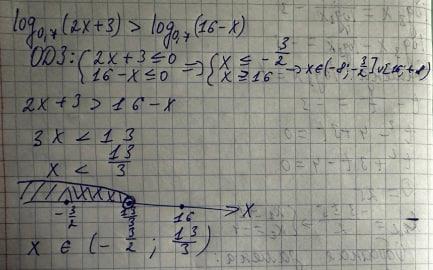 log₀,₇(2x+3) > log₀,₇(16-x)
ОДЗ: { 2x+3 ≤ 0 ; 16-x ≤ 0 => { x ≤ -3/2 ; x ≥ 16 => x ∈ (-8; -3/2] ∪ [16; +8)
2x+3 > 16-x
3x < 13
x < 13/3
-3/2 13/3 16 x
x ∈ (-3/2; 13/3)